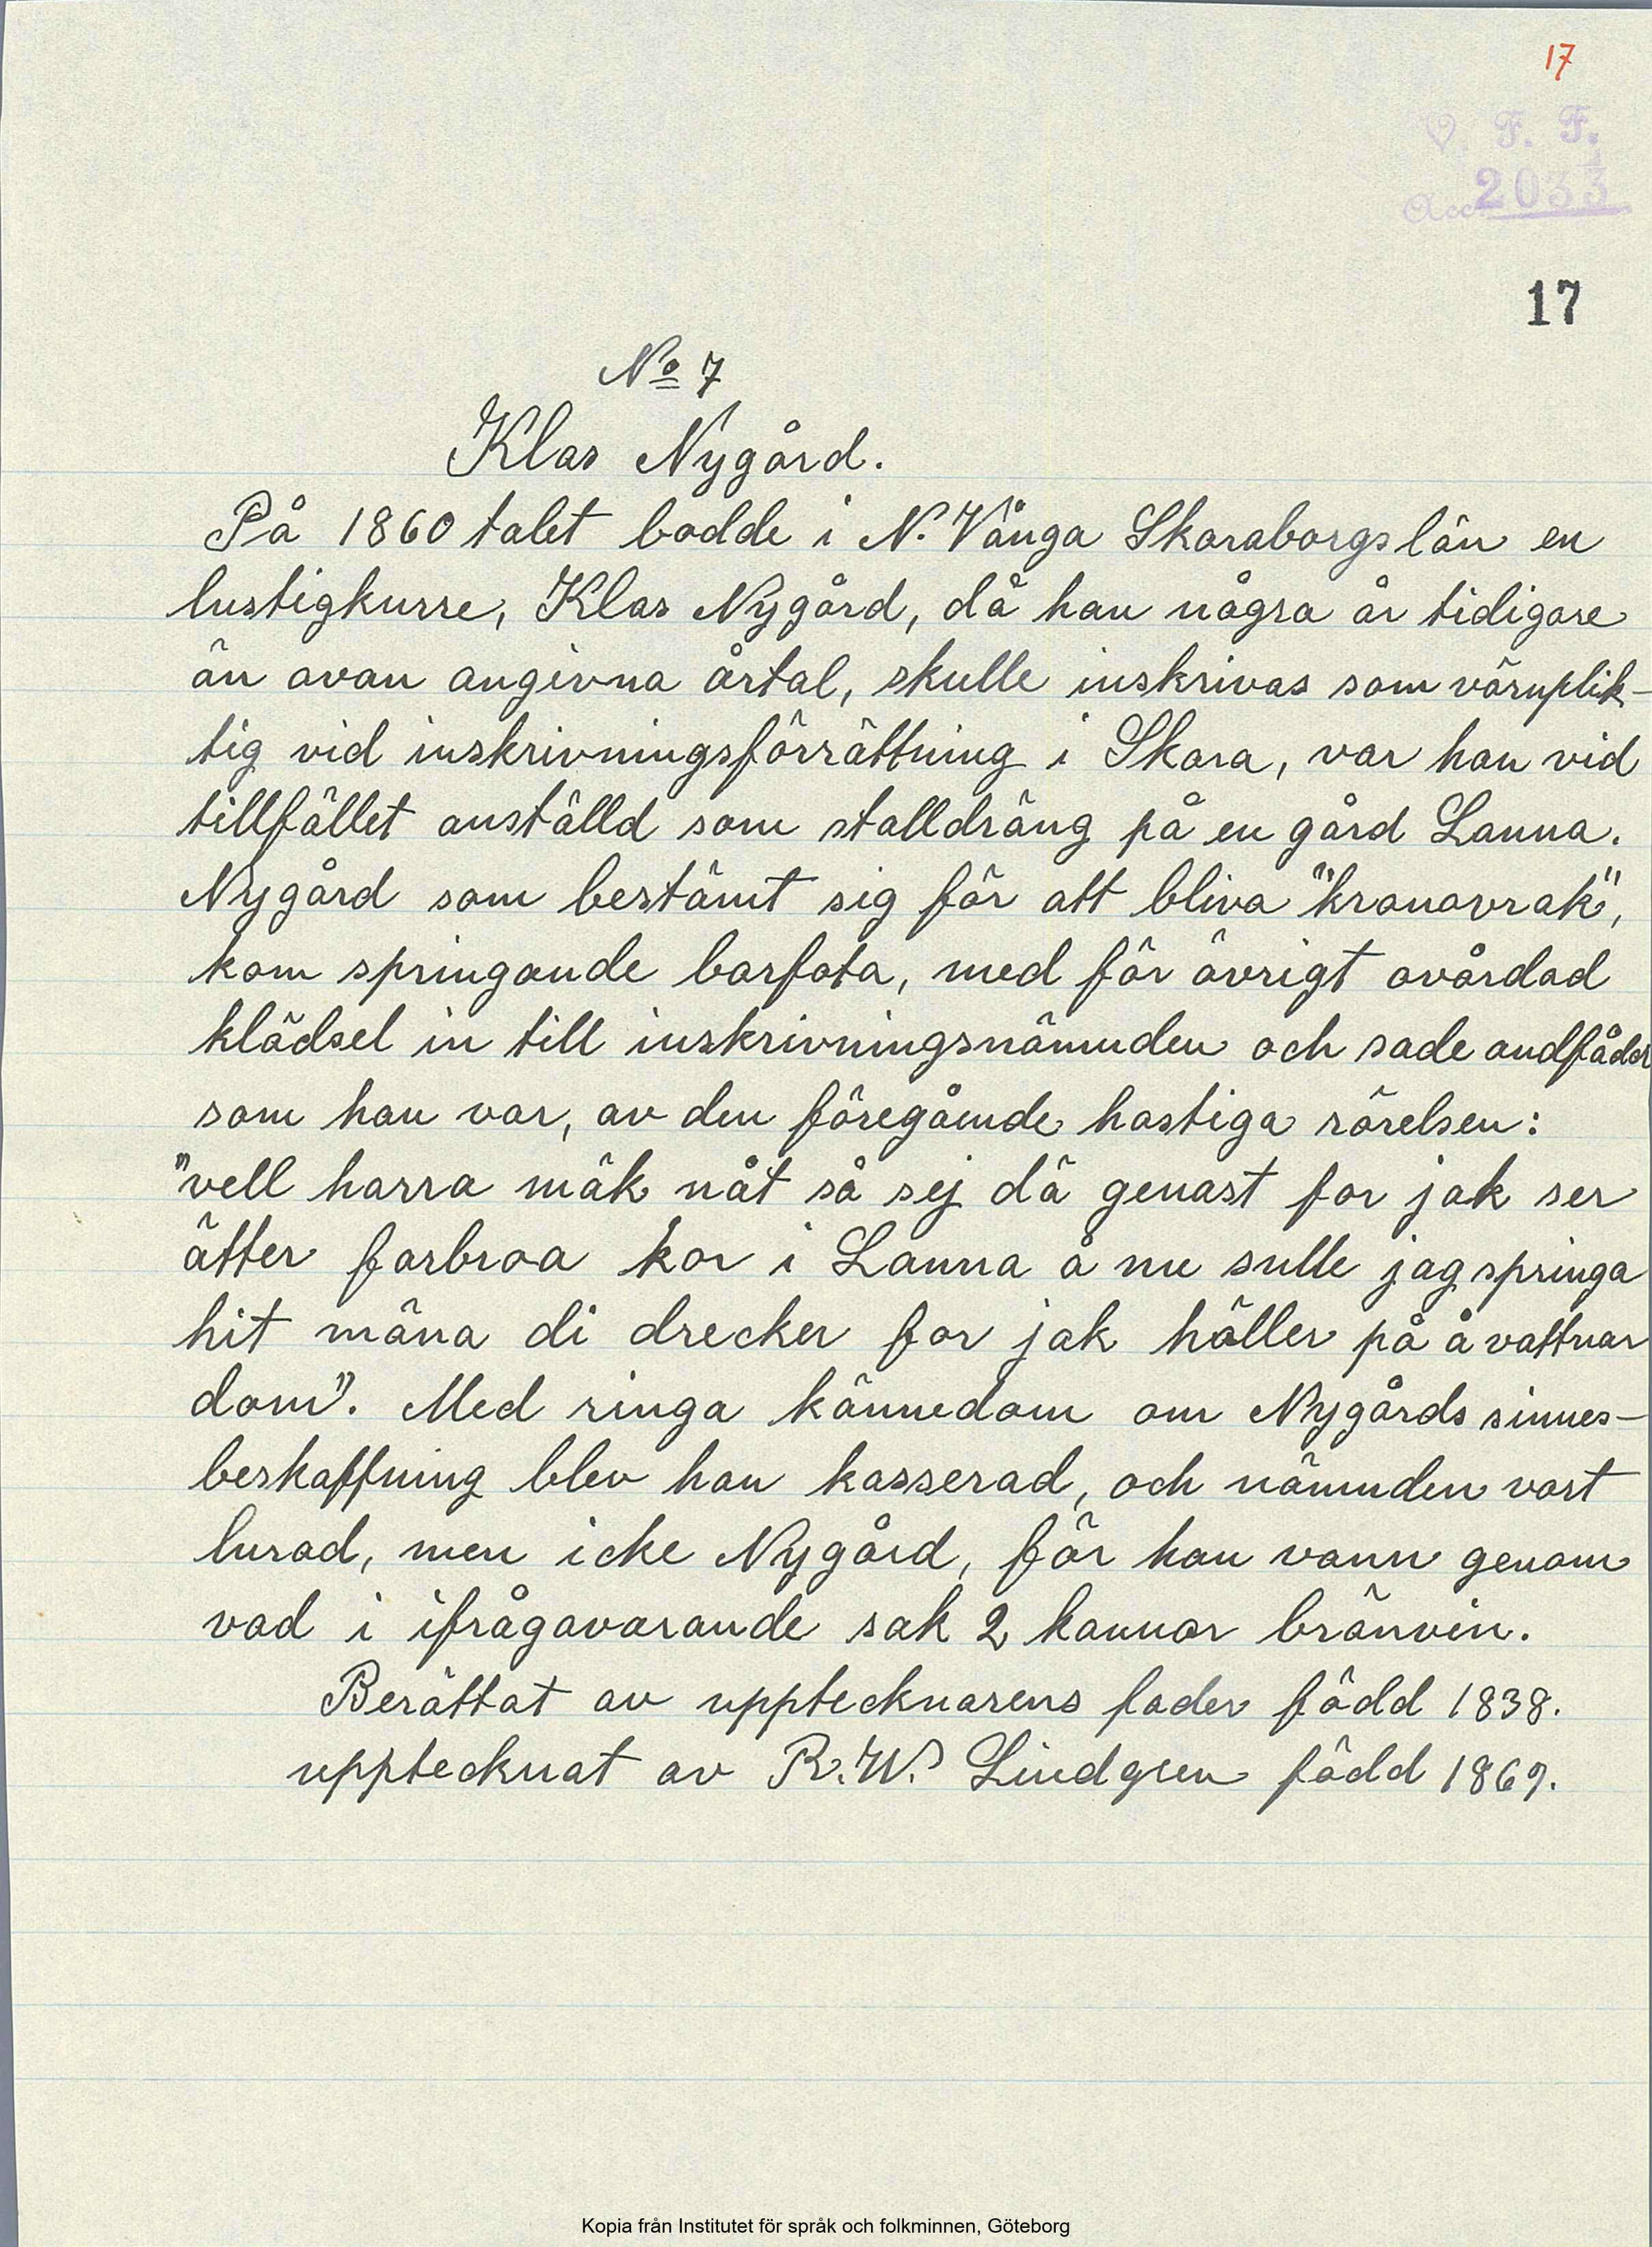 17
V. F. F.
Acc 2033
17
No 7
Klas Nygård.
På 1860 talet bodde i N. Vånga Skaraborgs län en
lustigkurre, Klas Nygård, då han några år tidigare
än ovan angivna årtal, skulle inskrivas som värnplik-
tig vid inskrivningsförrättning i Skara, var han vid
tillfället anställd som stalldräng på en gård Lanna.
Nygård som bestämt sig för att bliva "kronovrak",
kom springande barfota, med för övrigt ovårdad
klädsel in till inskrivningsnämnden och sade andfådd
som han var, av den föregående hastiga rörelsen:
"vell harra mäk nåt så sej dä genast for jak ser
ätter farbroa kor i Lanna å nu sulle jag springa
hit mäna di drecker for jak håller på å vattnar
dom". Med ringa kännedom om Nygårds sinnes-
beskaffning blev han kasserad, och nämnden vart
lurad, men icke Nygård, för han vann genom
vad i ifrågavarande sak 2 kannor bränvin.
Berättat av upptecknarens fader född 1838.
upptecknat av R.W. Lindgren född 1869.
Kopia från Institutet för språk och folkminnen, Göteborg